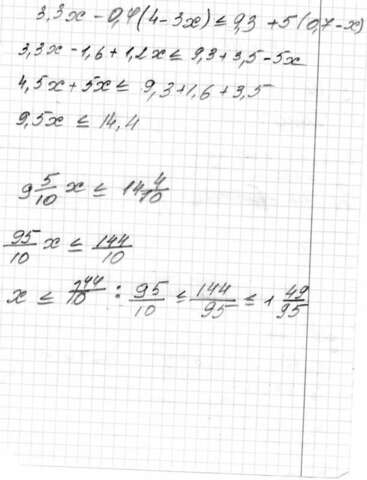 3,3x - 0,4(4-3x) ≤ 9,3 + 5(0,7-x)
3,3x - 1,6 + 1,2x ≤ 9,3 + 3,5 - 5x
4,5x + 5x ≤ 9,3 + 1,6 + 3,5
9,5x ≤ 14,4
9 5/10 x ≤ 14 4/10
95/10 x ≤ 144/10
x ≤ 144/10 : 95/10 ≤ 144/95 ≤ 1 49/95